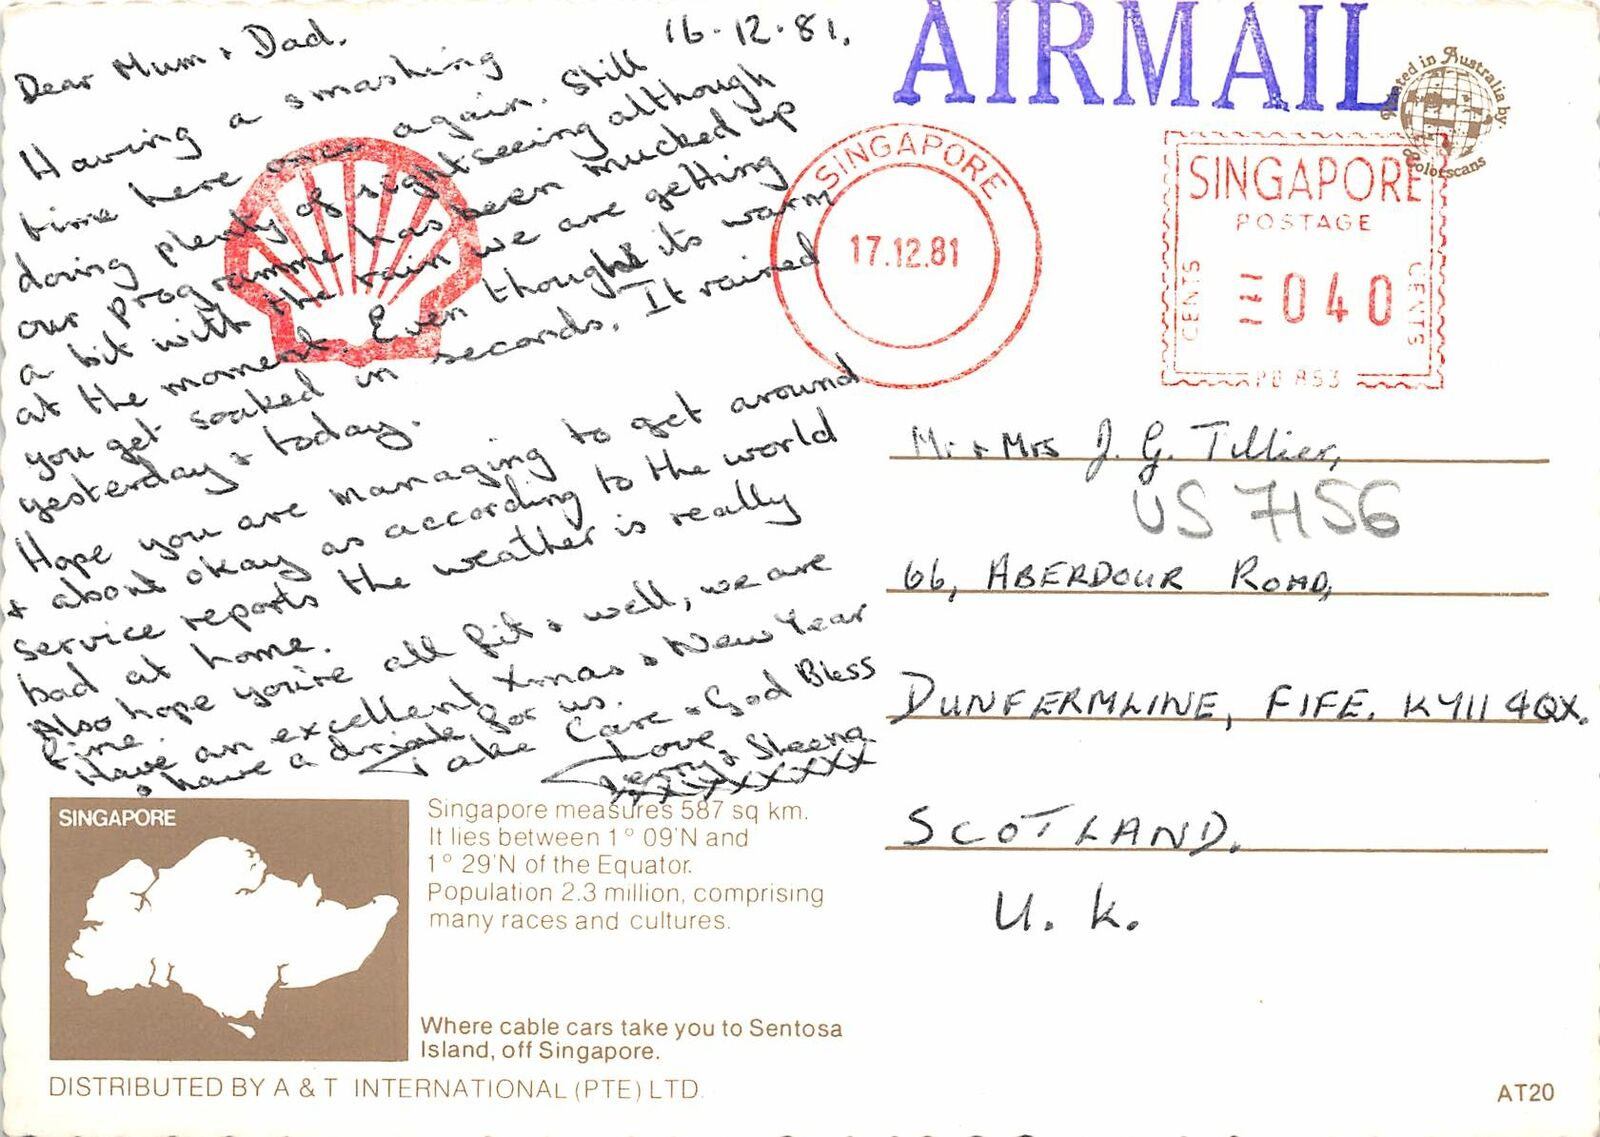 16.12.81.
Dear Mum + Dad.
Having a smashing
time here once again. Still
doing plenty of sightseeing although
our programme has been mucked up
a bit with the rain we are getting
at the moment. Even thought its warm
you get soaked in seconds. It rained
yesterday + today.
Hope you are managing to get around
+ about okay as according to the world
service reports the weather is really
bad at home.
Also hope you're all fit + well, we are
fine.
Have an excellent Xmas + New Year
+ have a drink for us.
Take Care + God Bless
Love
Terry + Sheena
xxxxxxxxx
AIRMAIL
Printed in Australia by:
Colorscans
SINGAPORE
17.12.81
SINGAPORE
POSTAGE
CENTS
040
CENTS
PB 853
Mr + Mrs J. G. Tillier,
US 7156
66, ABERDOUR ROAD,
DUNFERMLINE, FIFE. KY11 4QX.
SCOTLAND.
U.K.
SINGAPORE
Singapore measures 587 sq km.
It lies between 1° 09'N and
1° 29'N of the Equator.
Population 2.3 million, comprising
many races and cultures.
Where cable cars take you to Sentosa
Island, off Singapore.
DISTRIBUTED BY A & T INTERNATIONAL (PTE) LTD.
AT20